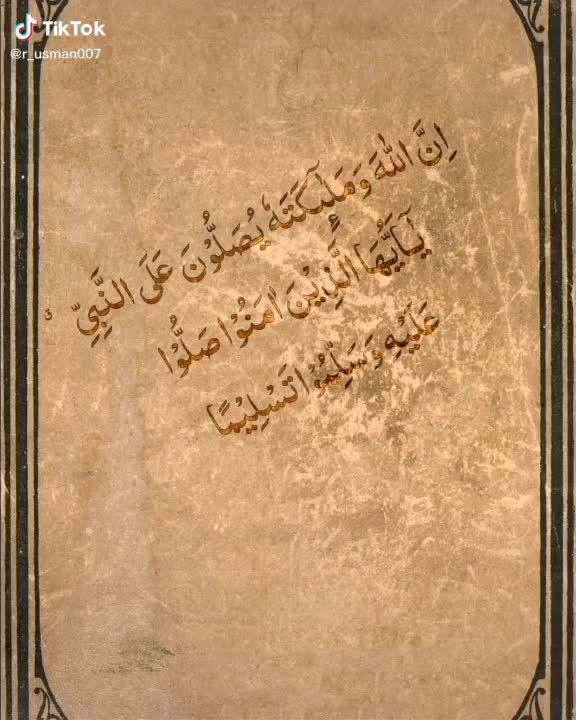 TikTok
@r_usman007
اِنَّ اللّٰهَ وَمَلٰٓئِكَتَهٗ يُصَلُّوْنَ عَلَى النَّبِيِّ ؕ
يٰۤاَيُّهَا الَّذِيْنَ اٰمَنُوْا صَلُّوْا
عَلَيْهِ وَسَلِّمُوْا تَسْلِيْمًا